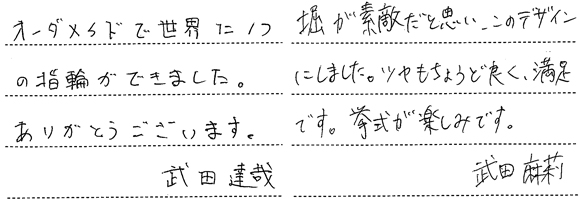 オーダメイドで世界に1つ
の指輪ができました。
ありがとうございます。
武田達哉
堀が素敵だと思い、このデザイン
にしました。ツヤもちょうど良く、満足
です。挙式が楽しみです。
武田麻莉